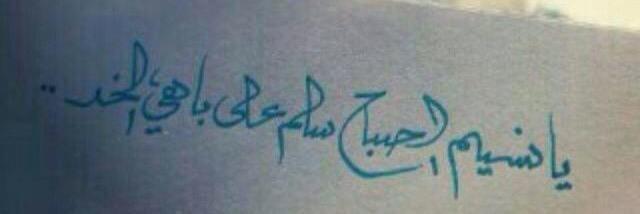 يا نسيم الصباح سلم على باهي الخد ..